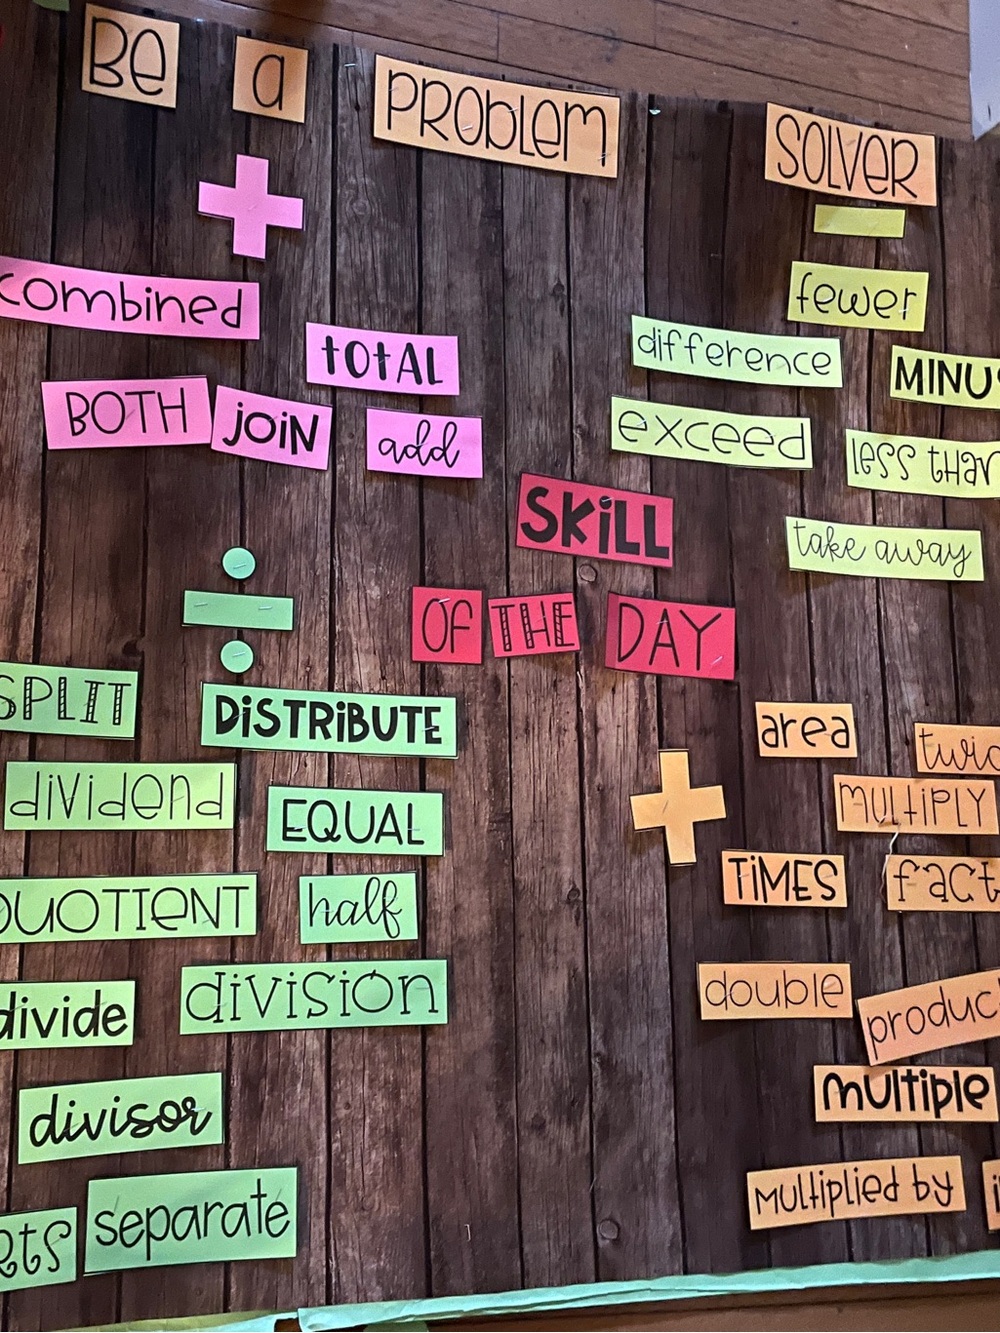 Be a PROBLEM SOLVER
combined
TOTAL
BOTH JOIN add
fewer
difference MINUS
exceed less than
take away
SKILL
OF THE DAY
SPLIT DISTRIBUTE
dividend EQUAL
QUOTIENT half
divide division
divisor
separate
area
MULTIPLY
TIMES
double
multiple
multiplied by